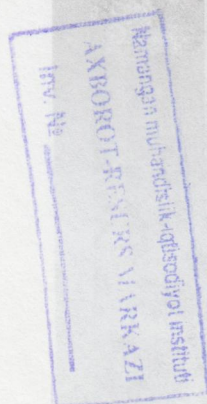 Namangan muhandislik-iqtisodiyot instituti
AXBOROT-RESURS MARKAZI
Inv. №